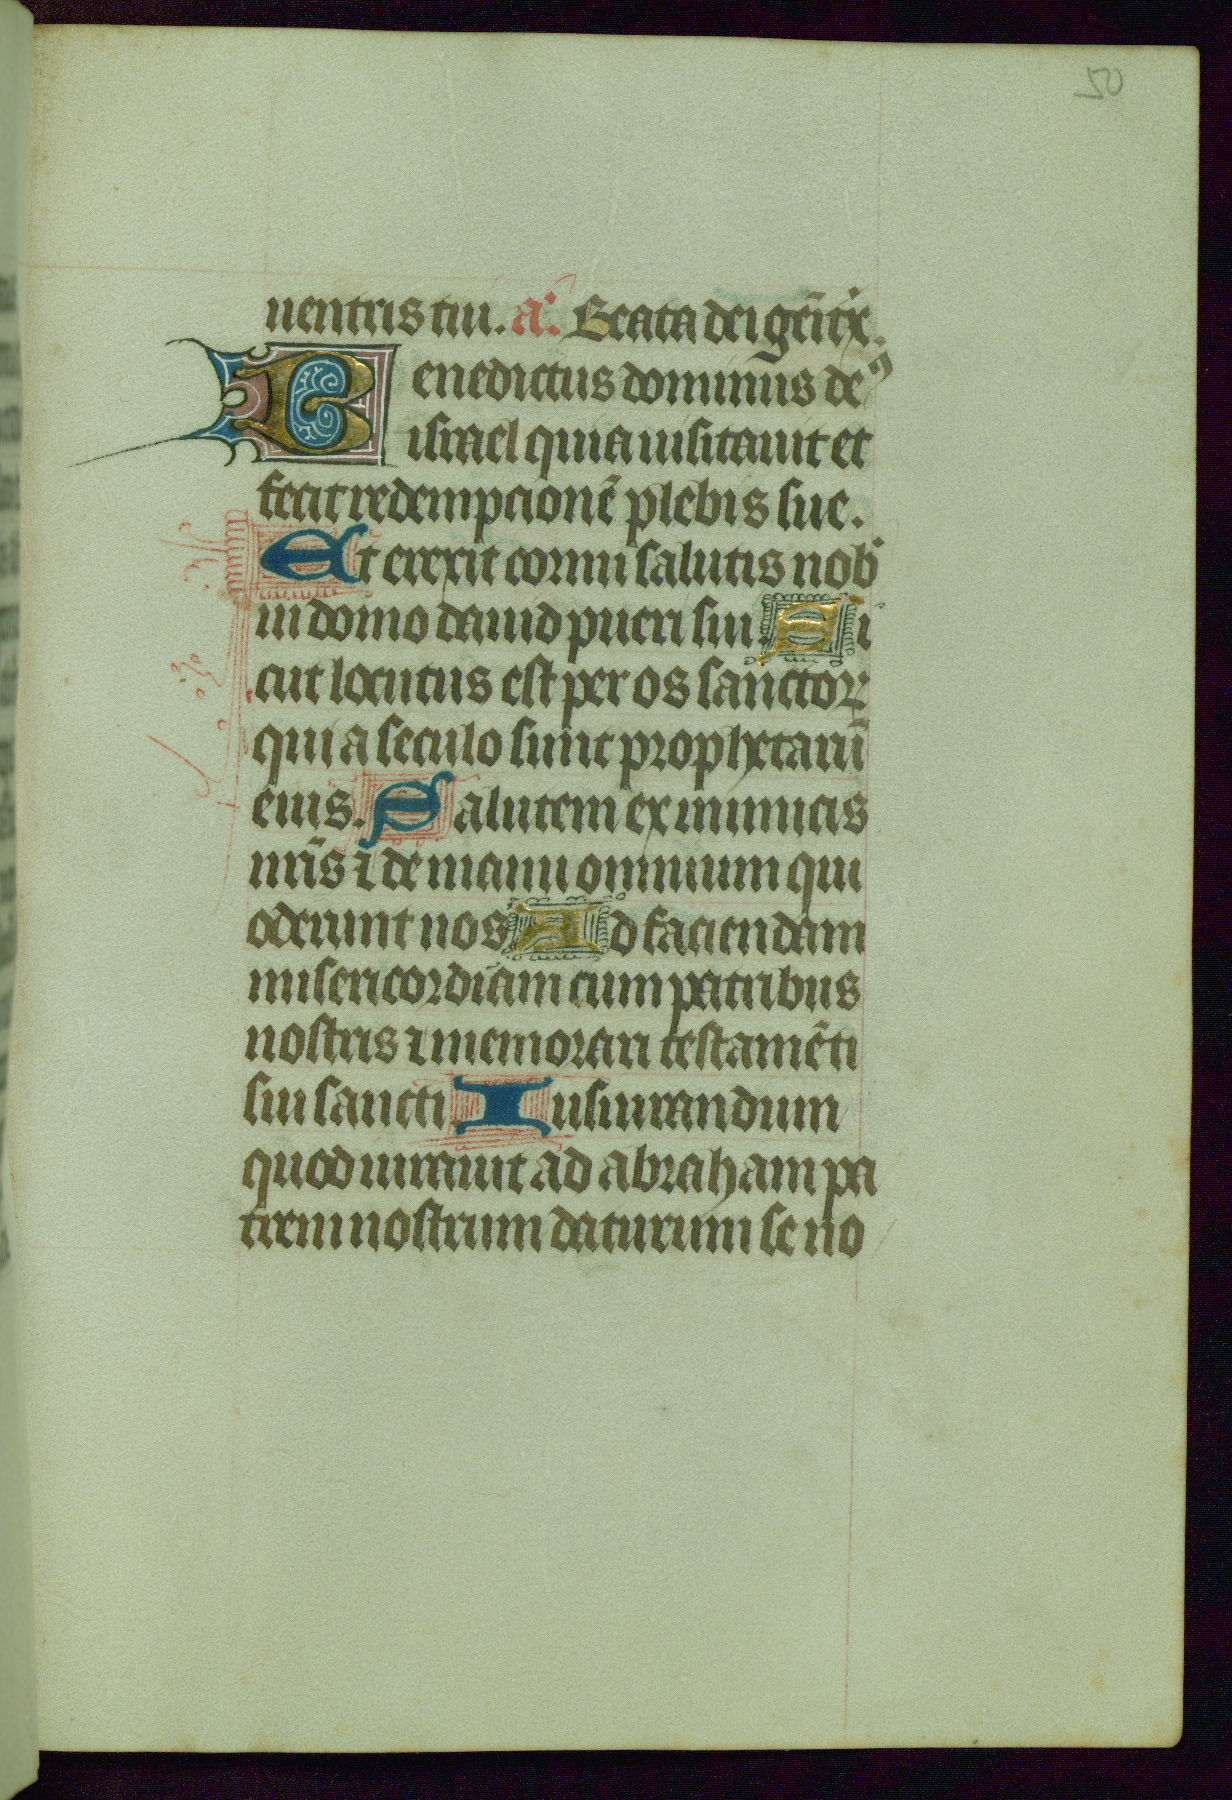 50
uentris tui. a͛. Beata dei gēit̾x.
Benedictus dominus deꝰ
israel quia uisitauit et
fecit redempcionē plebis sue.
Et erexit cornu salutis nob̾
in domo dauid pueri sui. Si
cut locutus est per os sanctoꝝ
qui a seculo sunt prophetarū
eius. Salutem ex inimicis
nr̄is ⁊ de manu omnium qui
oderunt nos Ad faciendam
misericordiam cum patribus
nostris ⁊ memorari testamēti
sui sancti. Iusiurandum
quod iurauit ad abraham pa
trem nostrum daturum se no